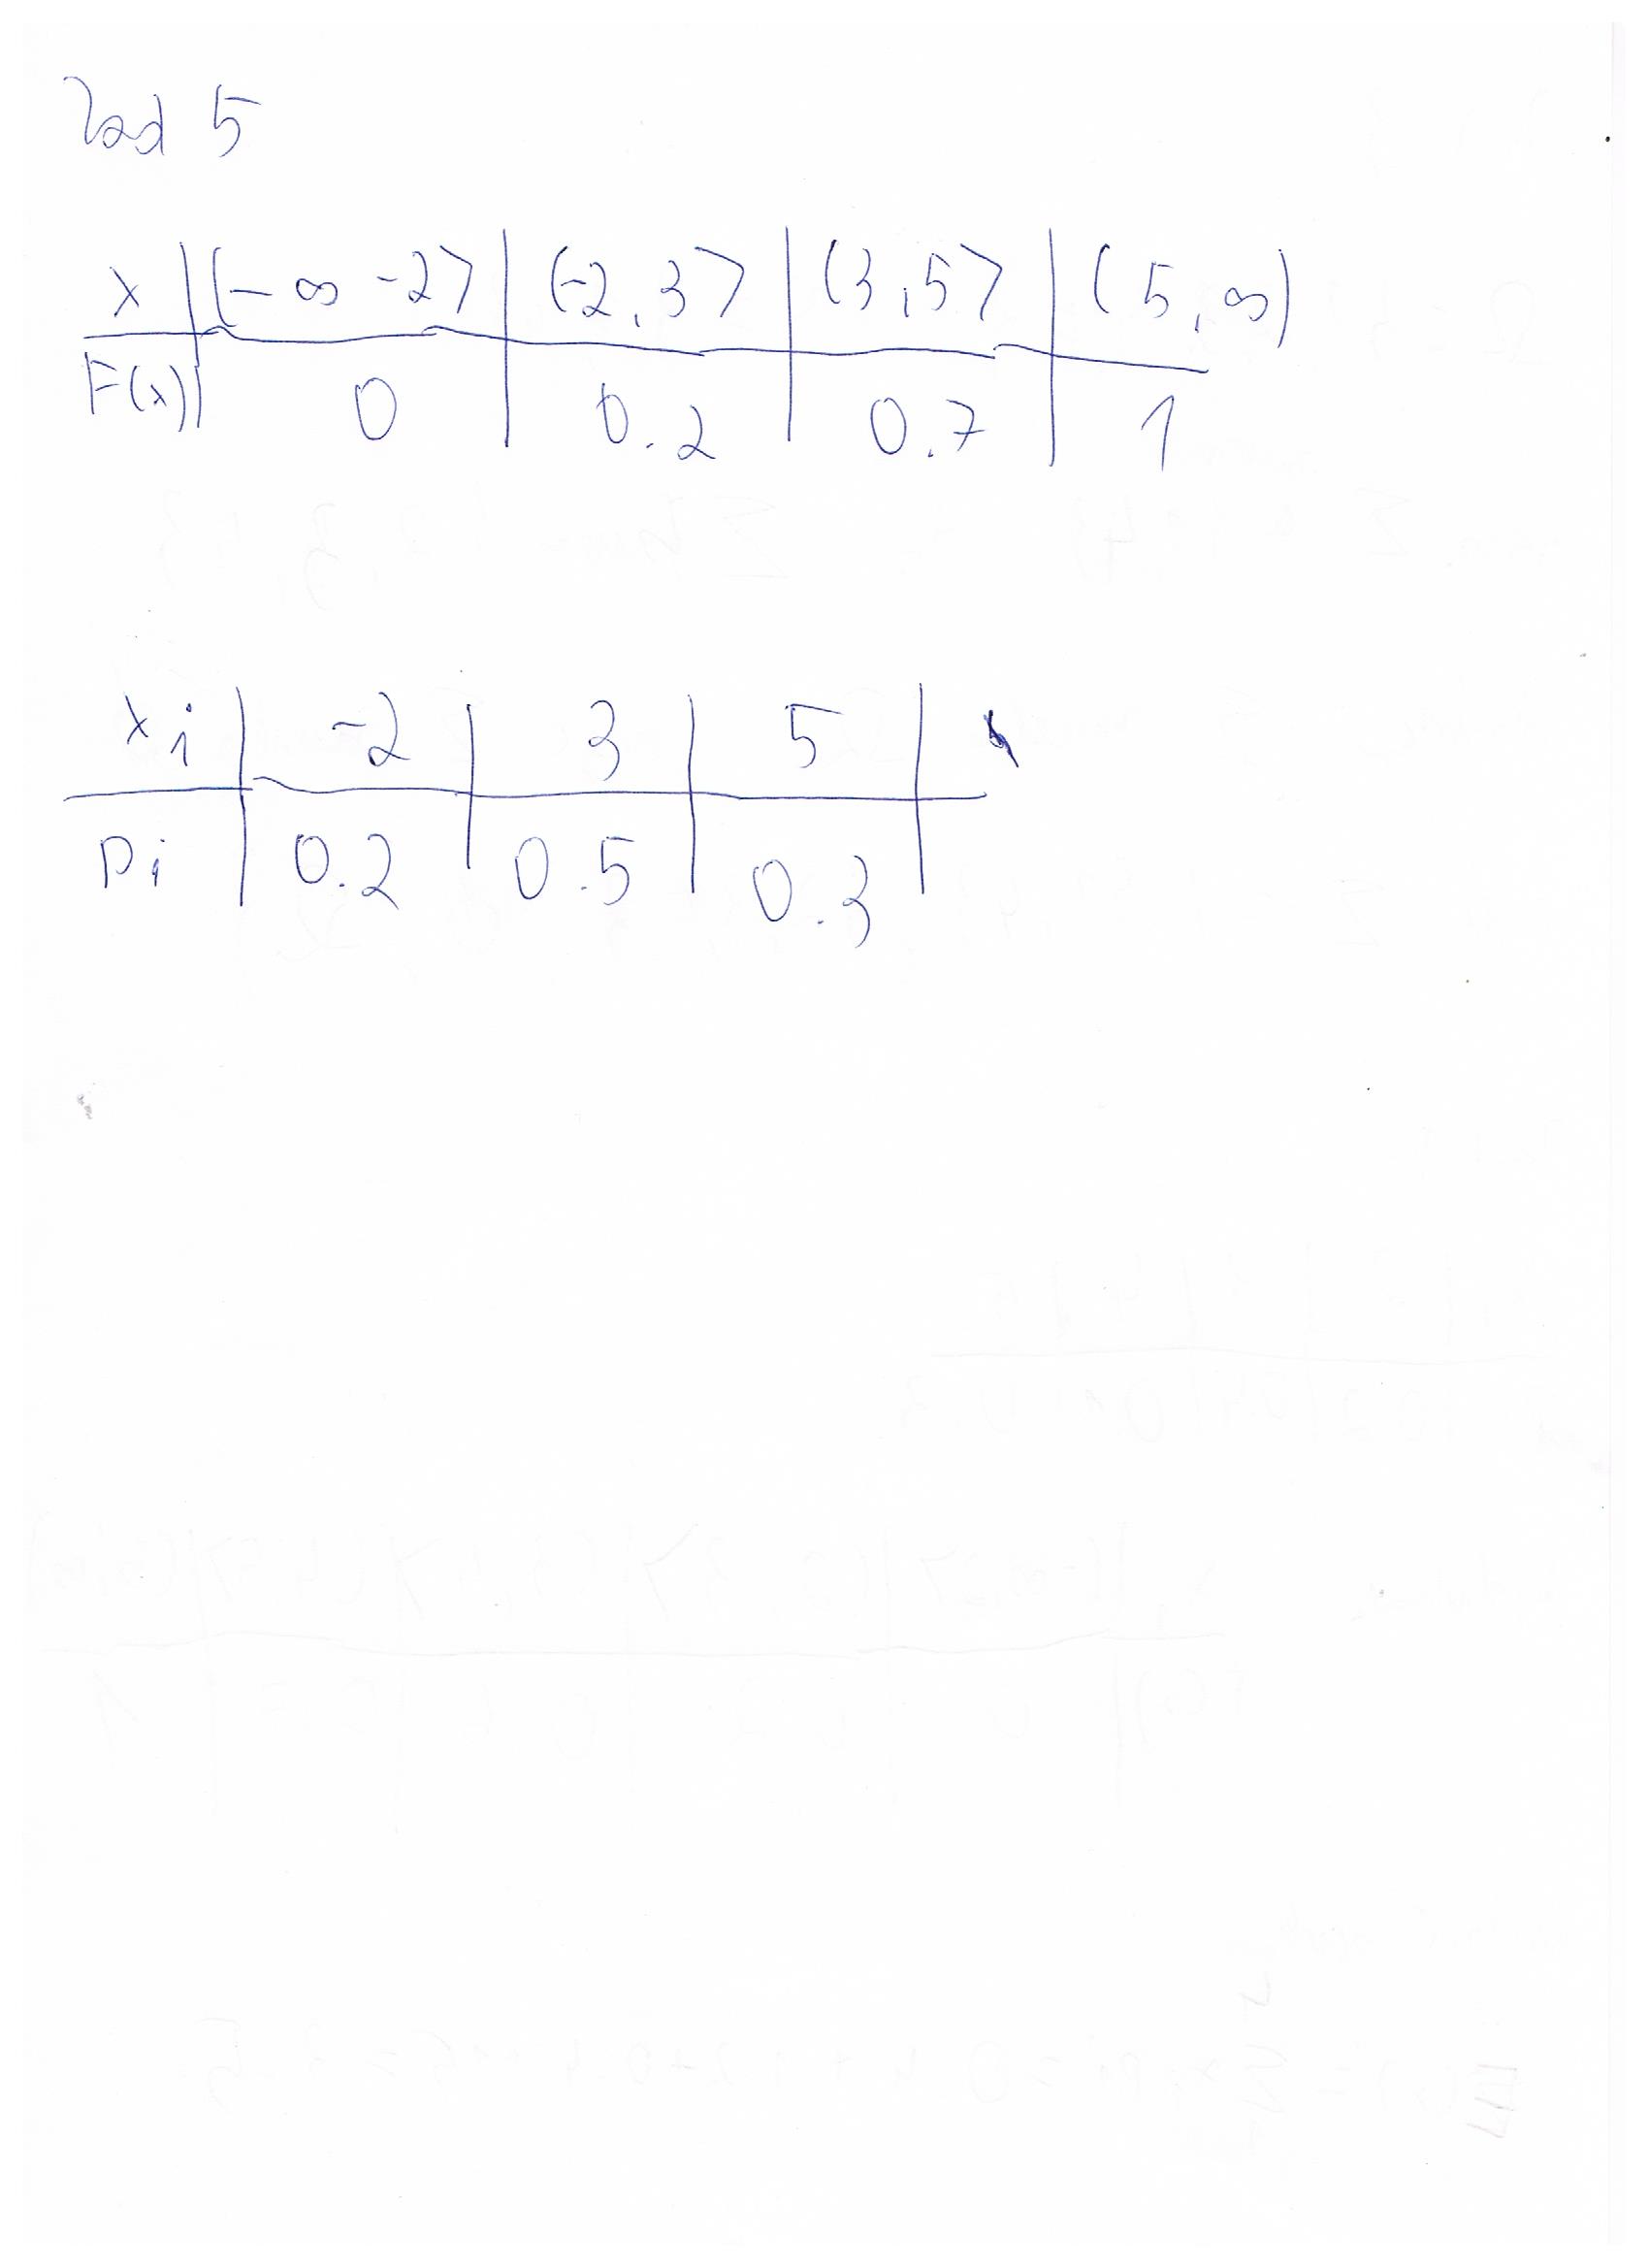 Zad 5
x | (-∞ -2> | (-2, 3> | (3, 5> | (5, ∞)
F(x) | 0 | 0.2 | 0.7 | 1
xi | -2 | 3 | 5 |
pi | 0.2 | 0.5 | 0.3 |